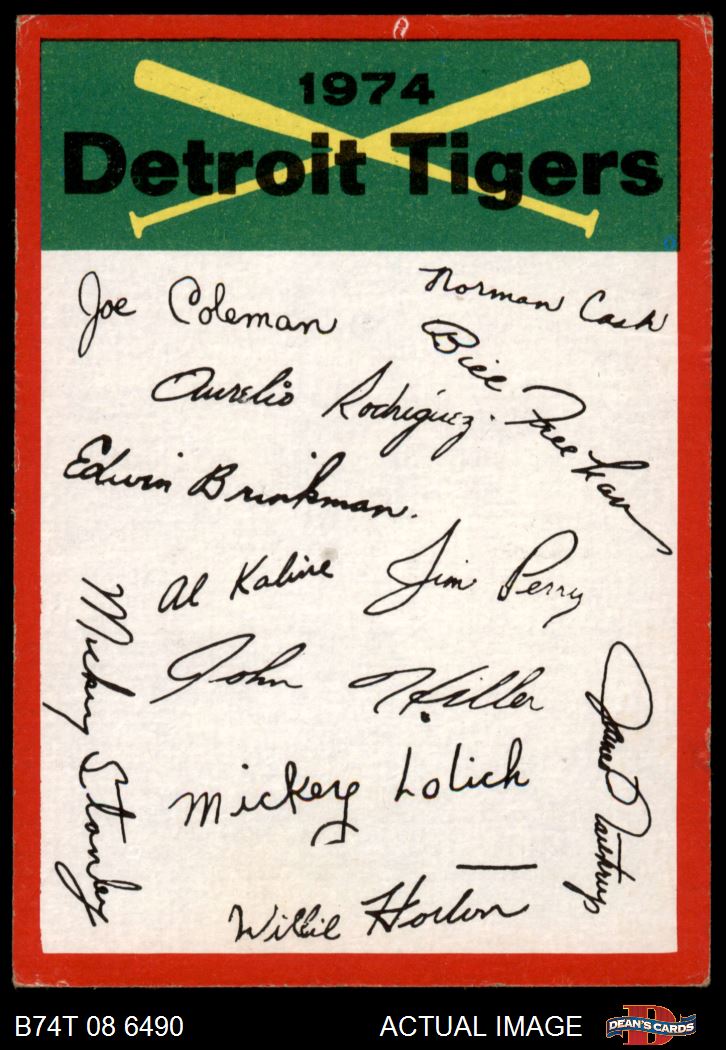 1974
Detroit Tigers
Joe Coleman
Norman Cash
Bill Freehan
Aurelio Rodriguez.
Edwin Brinkman.
Al Kaline
Jim Perry
John Hiller
Mickey Stanley
James Northrup
Mickey Lolich
Willie Horton
B74T 08 6490
ACTUAL IMAGE
D
DEAN'S CARDS